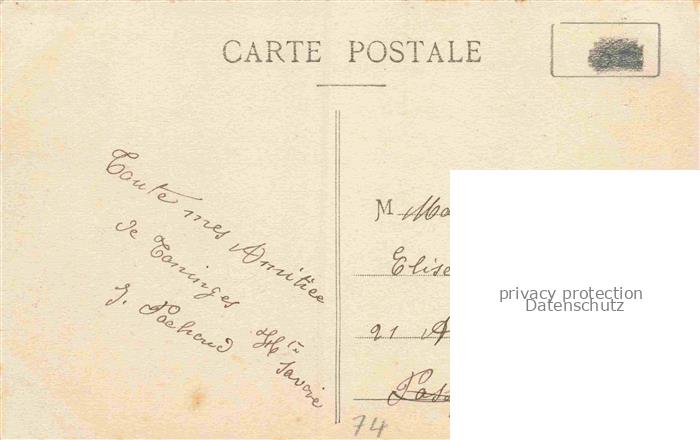 CARTE POSTALE
Toute mes Amitiée
de Taninges
Hte Savoie
J. Pochaud
M
Elise
21 A
74
privacy protection
Datenschutz